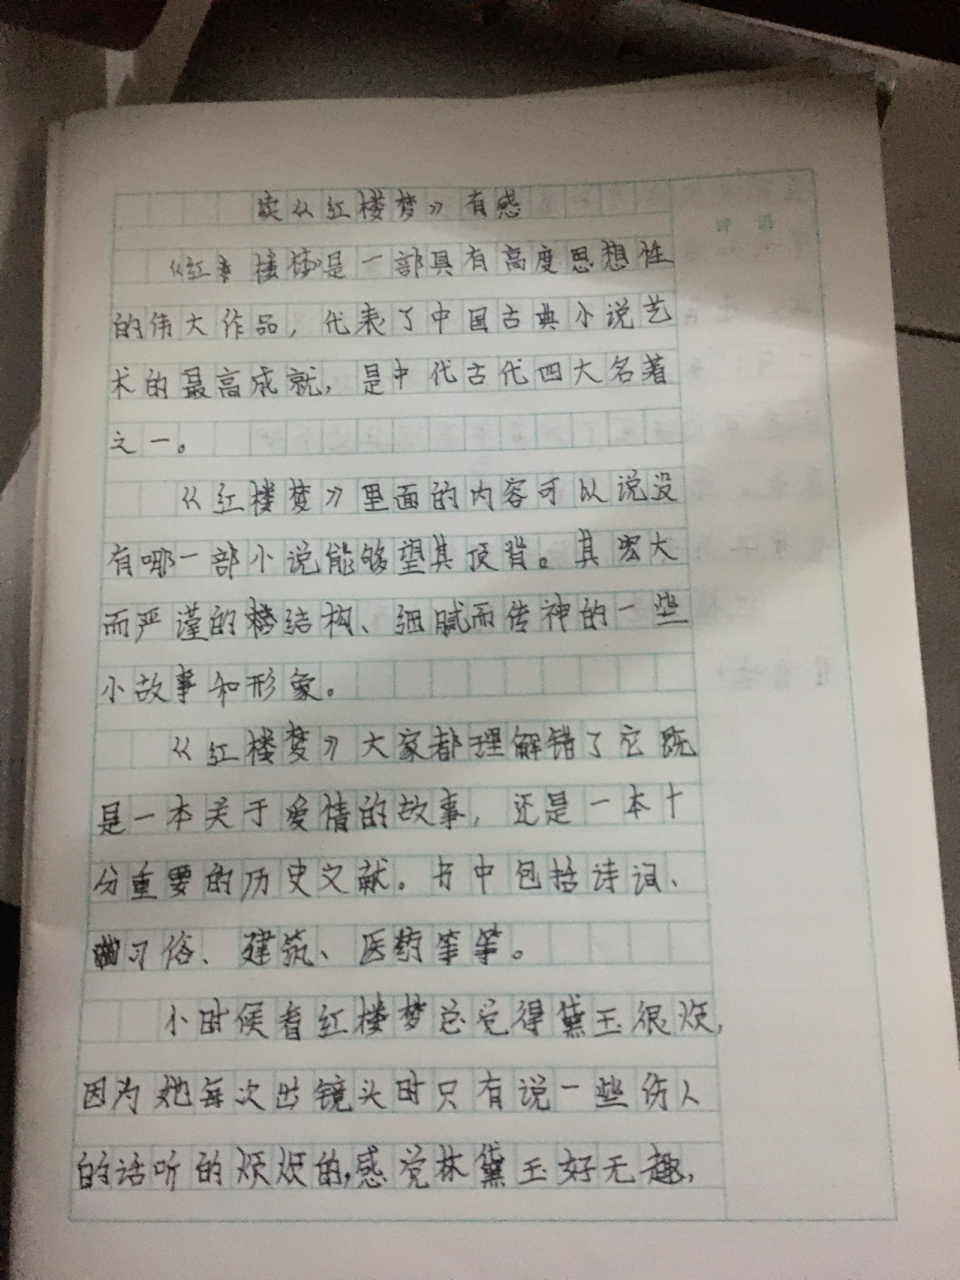 读《红楼梦》有感
《红楼梦》是一部具有高度思想性
的伟大作品，代表了中国古典小说艺
术的最高成就，是中代古代四大名著
之一。
《红楼梦》里面的内容可以说没
有哪一部小说能够望其顶背。其宏大
而严谨的结构、细腻而传神的一些
小故事和形象。
《红楼梦》大家都理解错了它既
是一本关于爱情的故事，还是一本十
分重要的历史文献。书中包括诗词、
习俗、建筑、医药等等。
小时候看红楼梦总觉得黛玉很烦，
因为她每次出镜头时只有说一些伤人
的话听的烦烦的，感觉林黛玉好无趣，